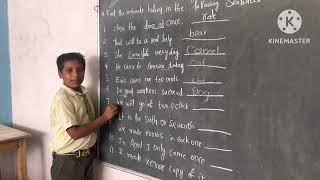 Find the animals hiding in the following sentences
1. Close the door at once. rat
2. That will be a real help bear
3. She came to everyday. Camel
4. He came to America today Cat
5. Eric owns ten cents Cow
6. Do good workers succeed Dog
7. We will go at two o'clock
It is the sixth or seventh
we made errors in each one
10. In April I only came once
11. I made xerox copy of it
KINEMASTER